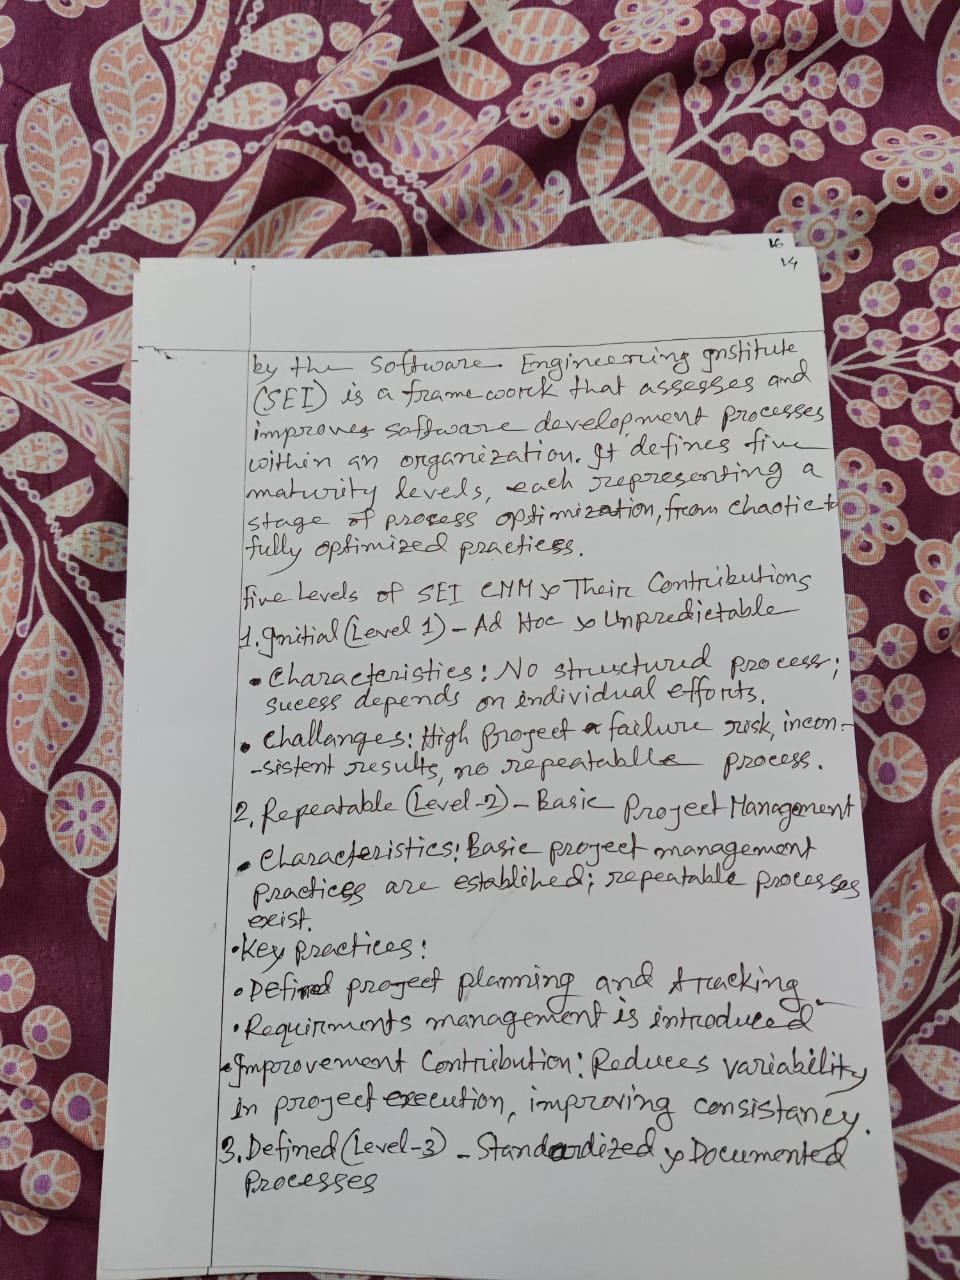 16
14
by the Software Engineering Institute
(SEI) is a framework that assesses and
improves software development processes
within an organization. It defines five
maturity levels, each representing a
stage of process optimization, from chaotic to
fully optimized practices.
Five Levels of SEI CMM & Their Contributions
1. Initial (Level 1) - Ad Hoc & Unpredictable
• Characteristics: No structured process;
sucess depends on individual efforts.
• Challanges: High Project failure risk, incon-
-sistent results, no repeatablle process.
2. Repeatable (Level-2) - Basic Project Management
• Characteristics: Basic project management
practices are establihed; repeatable processes
exist.
• Key practices:
• Defined project planning and tracking.
• Requirments management is introduced
• Improvement Contribution: Reduces variability
in project execution, improving consistancy.
3. Defined (Level-3) - Standardized & Documented
Processes